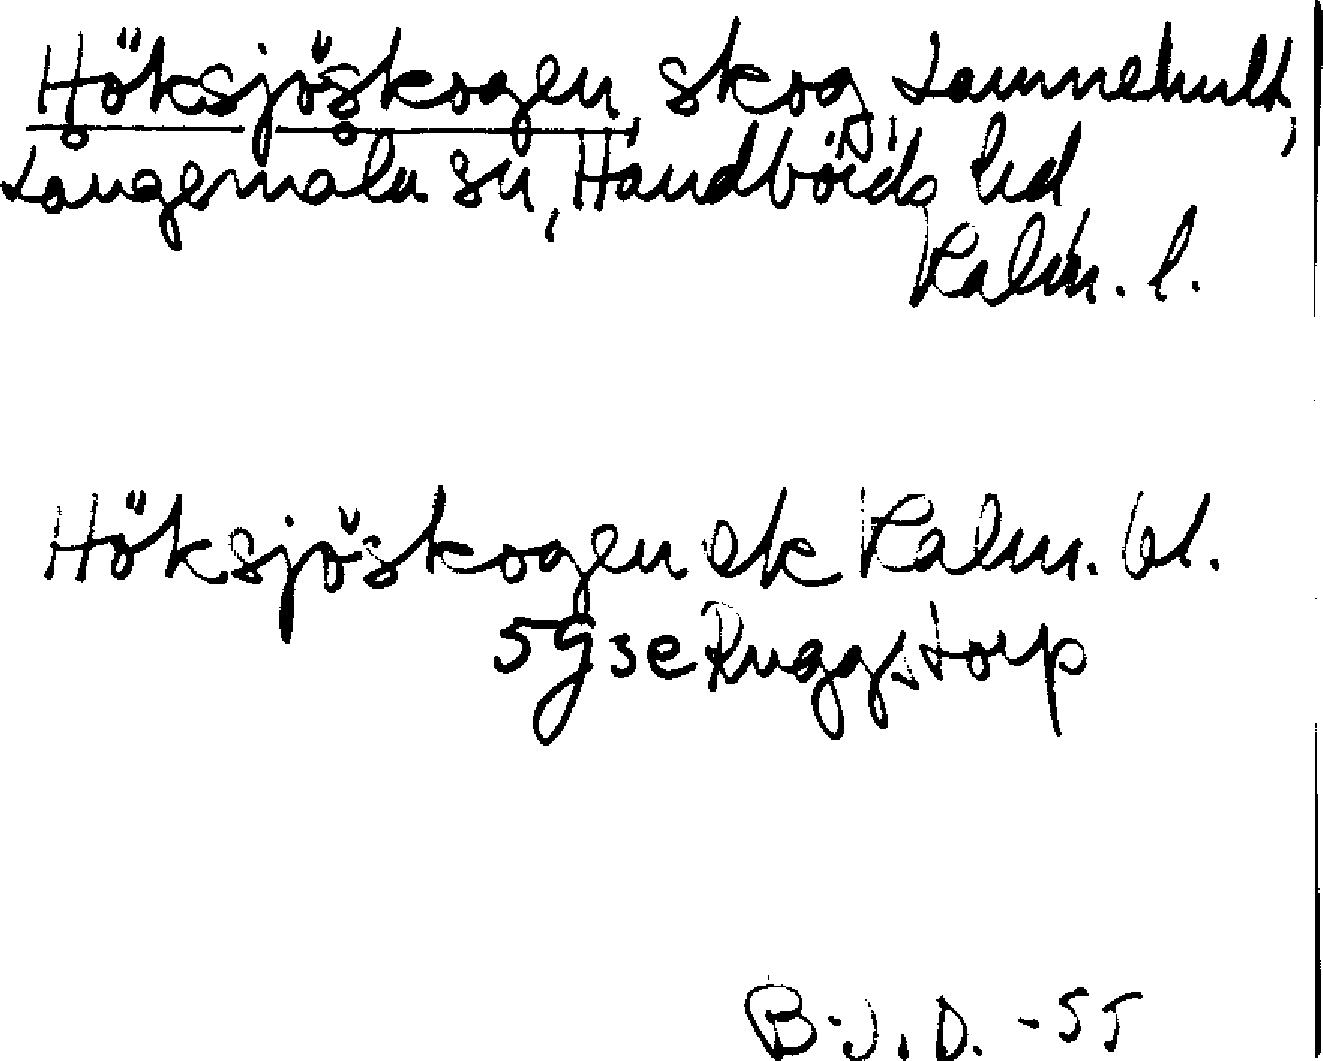 Höksjöskogen, skog, Lannehult,
Långemåla sn, Handbörds hd
Kalm. l.
Höksjöskogen ek Kalm. bl.
5g3e Ruggstorp
B.J.D. -55